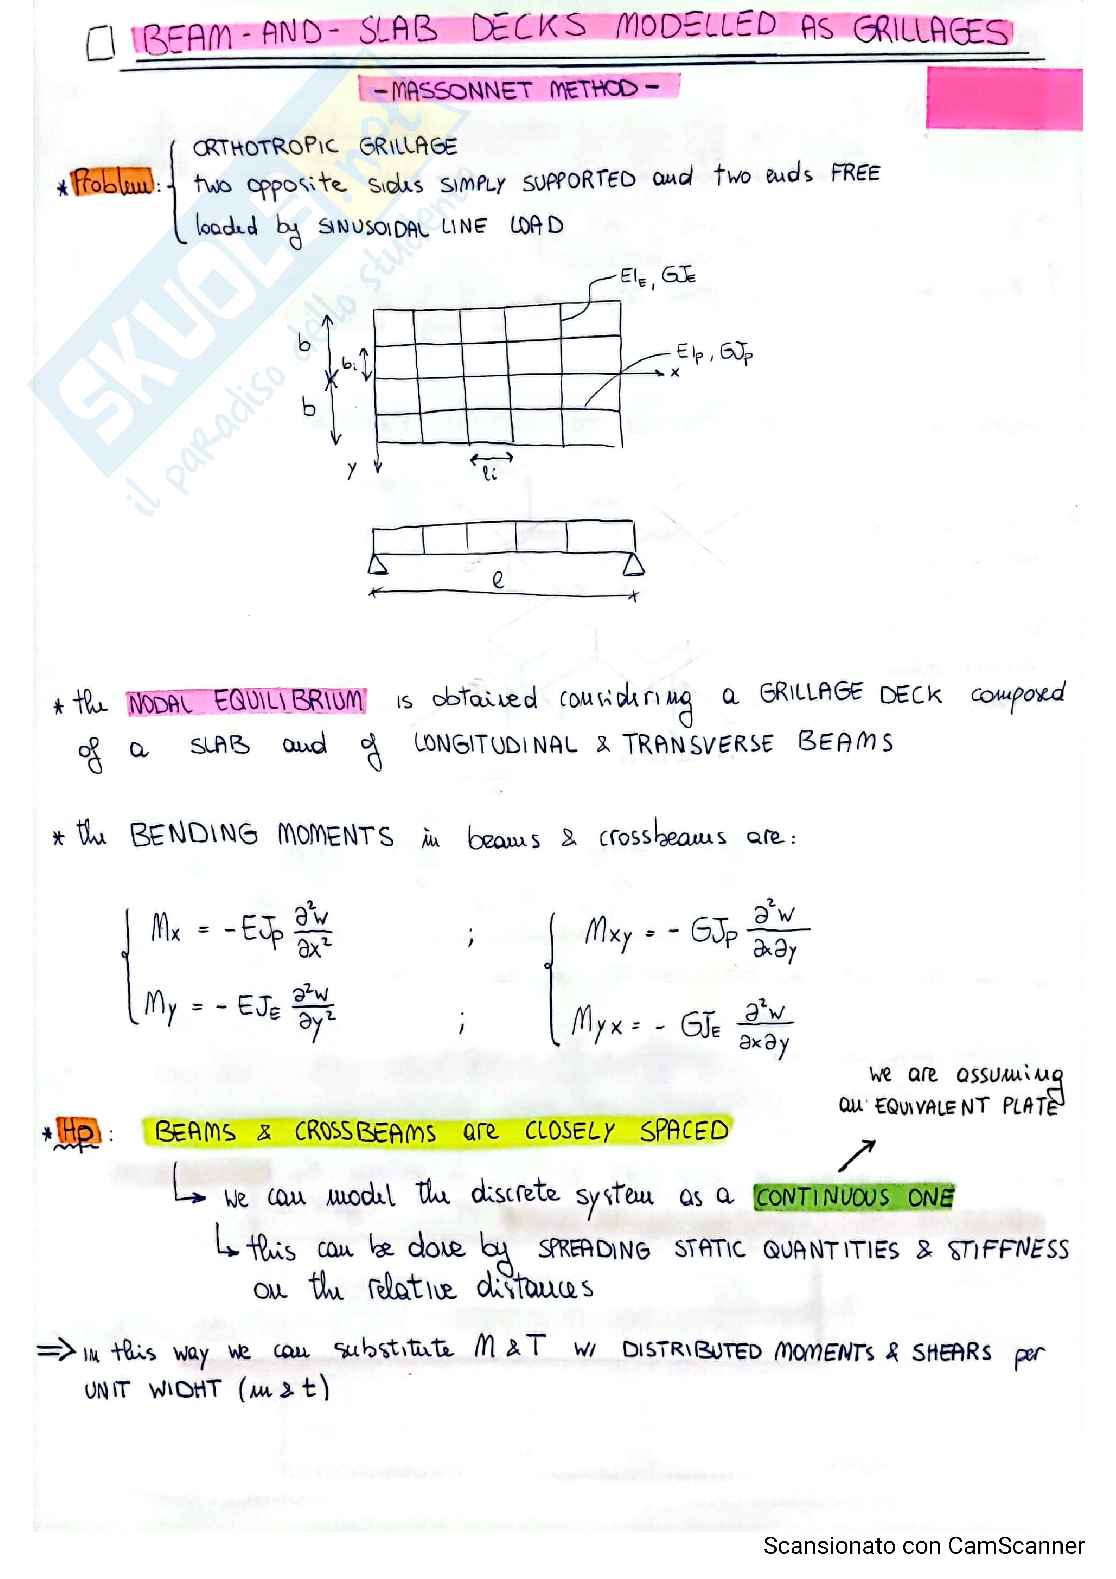 BEAM-AND-SLAB DECKS MODELLED AS GRILLAGES
-MASSONNET METHOD-
* Problem: ORTHOTROPIC GRILLAGE
two opposite sides SIMPLY SUPPORTED and two ends FREE
loaded by SINUSOIDAL LINE LOAD
SKUOLA.net
il paradiso dello studente
EI_E, GJ_E
b
b_i
EI_P, GJ_P
x
b
y
l_i
l
* the NODAL EQUILIBRIUM is obtained considering a GRILLAGE DECK composed
of a SLAB and of LONGITUDINAL & TRANSVERSE BEAMS
* the BENDING MOMENTS in beams & crossbeams are:
Mx = -EJ_P ∂²w/∂x² ; Mxy = - GJ_P ∂²w/∂x∂y
My = - EJ_E ∂²w/∂y² ; Myx = - GJ_E ∂²w/∂x∂y
we are assuming
an EQUIVALENT PLATE
* Hp: BEAMS & CROSSBEAMS are CLOSELY SPACED
↳ we can model the discrete system as a CONTINUOUS ONE
↳ this can be done by SPREADING STATIC QUANTITIES & STIFFNESS
on the relative distances
=> in this way we can substitute M & T w/ DISTRIBUTED MOMENTS & SHEARS per
UNIT WIDHT (m & t)
Scansionato con CamScanner